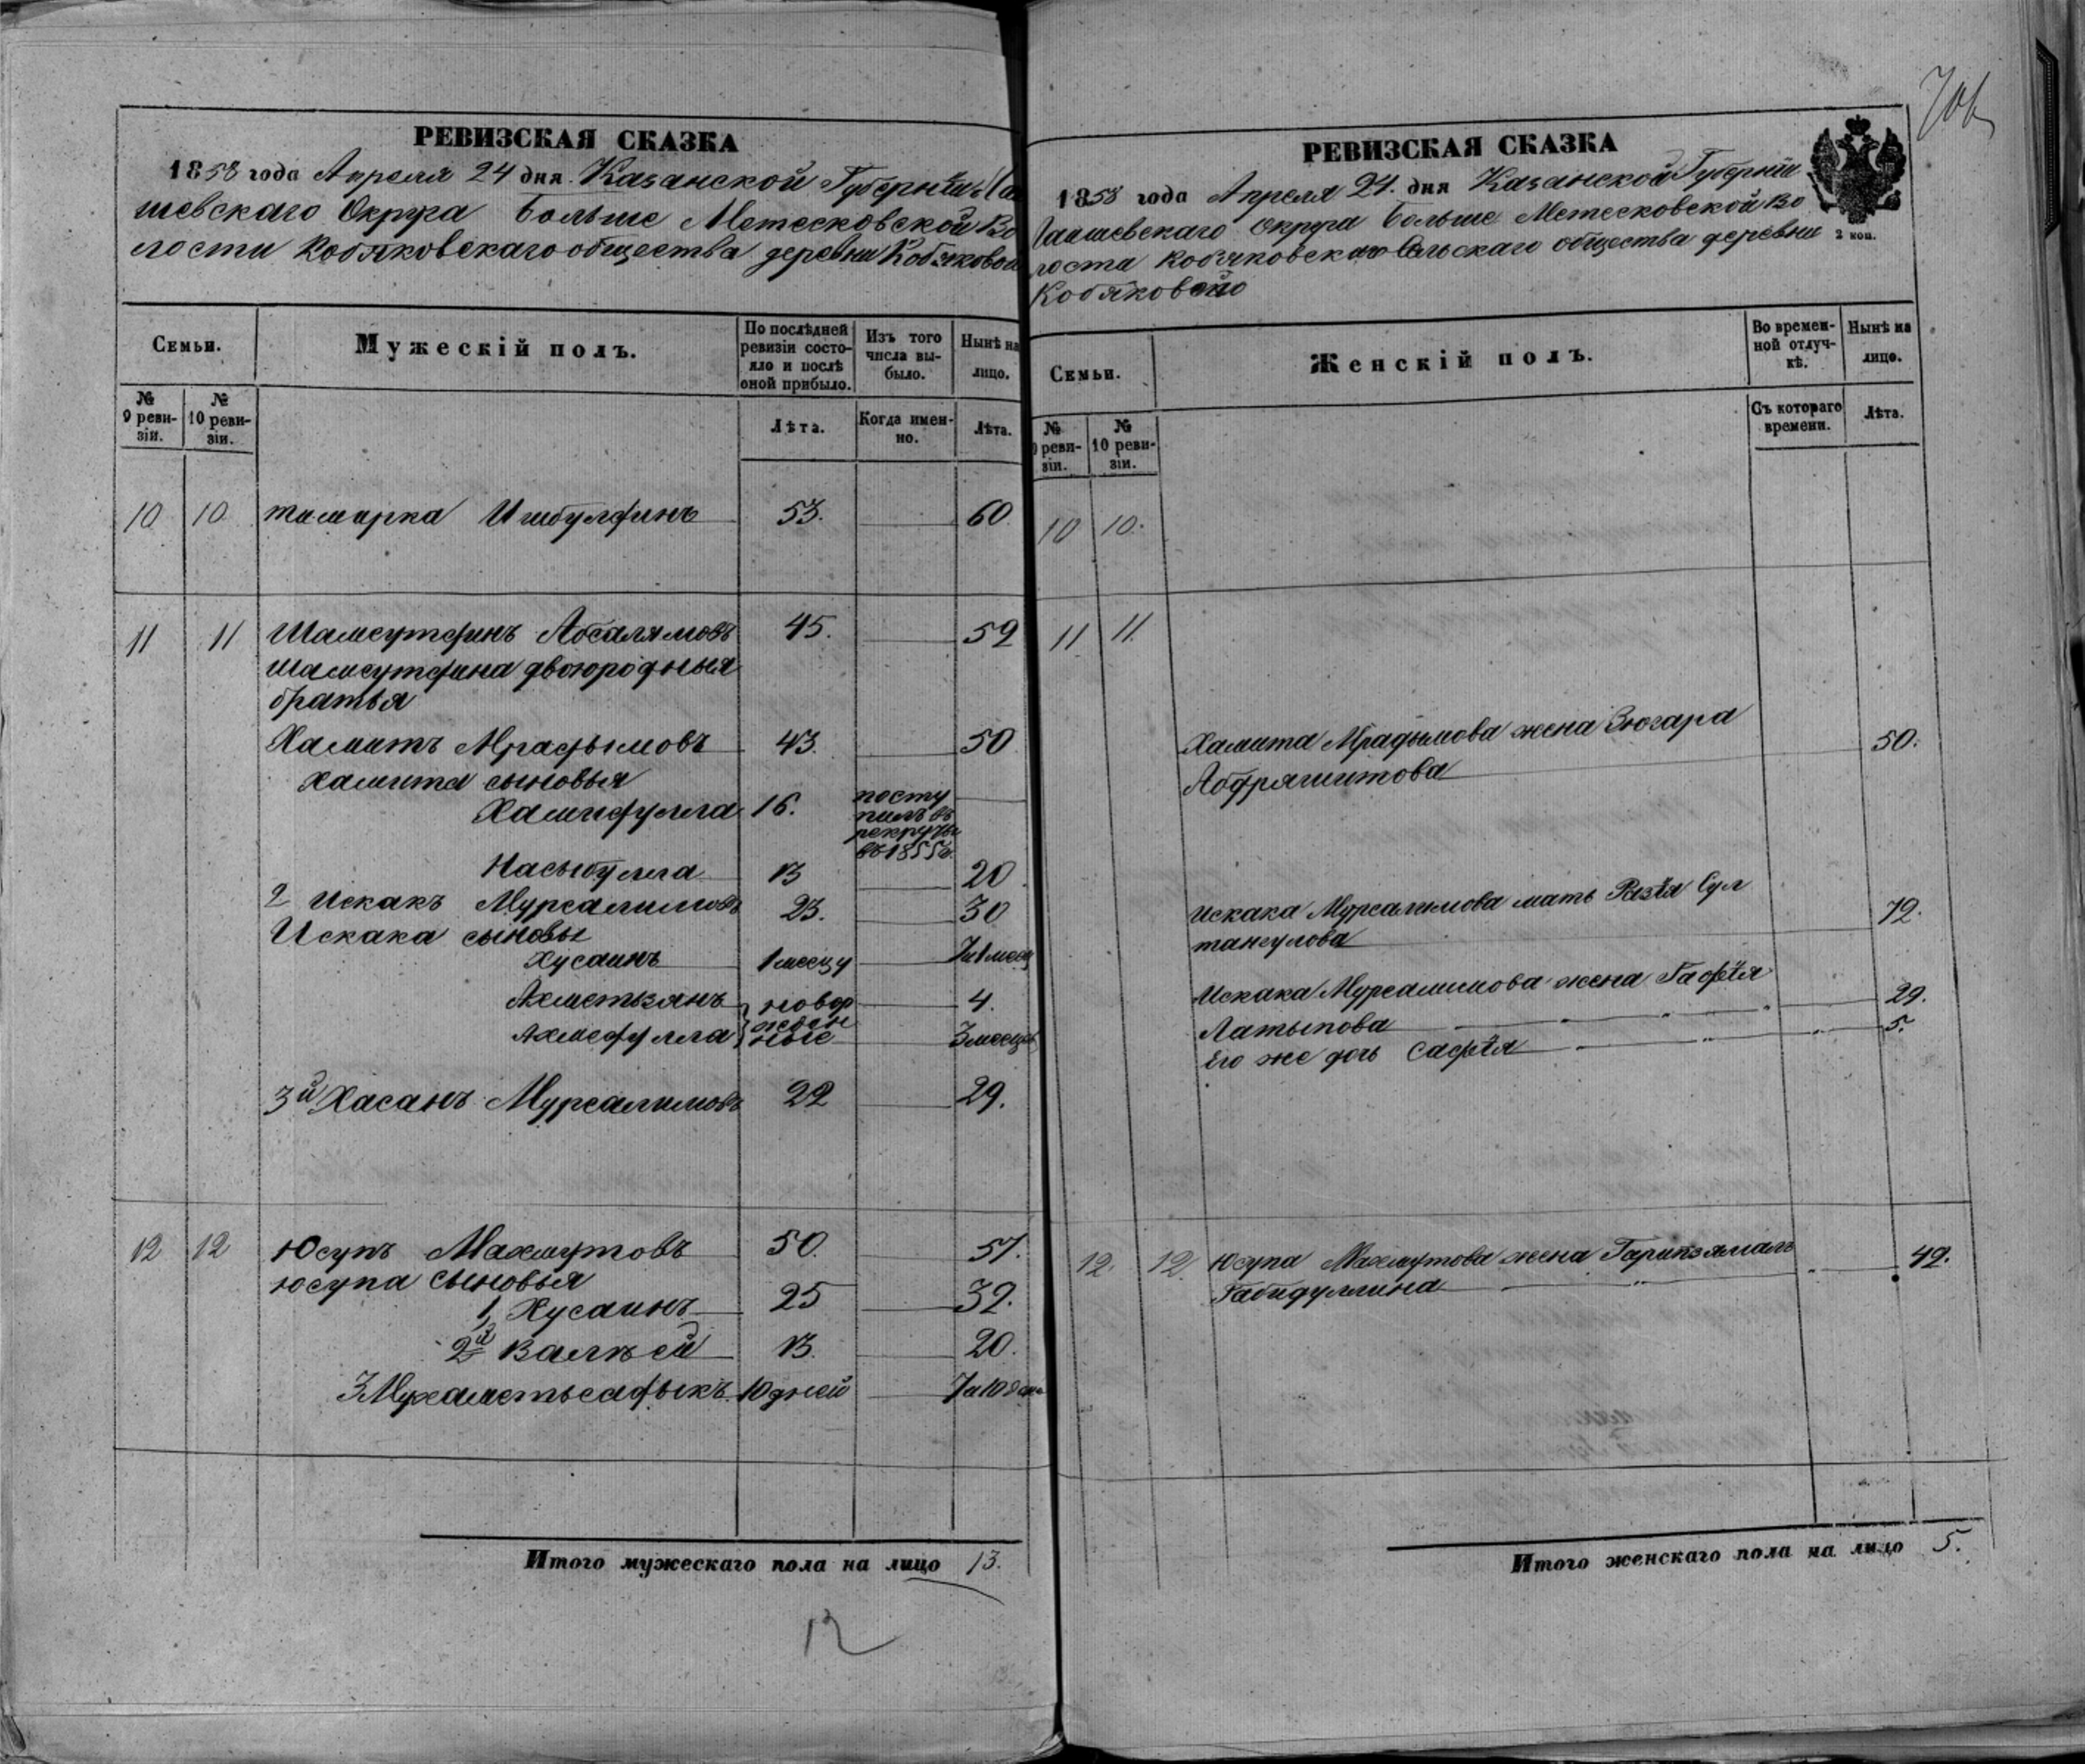 РЕВИЗСКАЯ СКАЗКА
1858 года Апреля 24 дня. Казанской Губернии Лаи
шевскаго Округа Больше Метесковской Во
лости Кобяковскаго общества деревни Кобяковой
Семьи.
Мужескій полъ.
По послѣдней ревизіи состояло и послѣ оной прибыло.
Изъ того числа выбыло.
Нынѣ на лицо.
№ 9 ревизіи.
№ 10 ревизіи.
Лѣта.
Когда именно.
Лѣта.
10 10 Ишбулдинъ 53. 60
11 11 Шамсутдинъ Абсалямовъ 45. 52
Шамсутдина двоюродныя
братья
Хамитъ Мрадымовъ 43. 50
Хамита сыновья
Хамидулла 16. посту
пилъ въ
рекруты
въ 1855г.
Насыбулла 13 20
2 Искакъ Мурсалимовъ 23. 30
Искака сыновья
Хусаинъ 1 месецу 7 и 1 месец
Ахметьзянъ новор 4.
Ахмедулла жден
ные 3 месецов
3й Хасанъ Мурсалимовъ 22 29.
12 12 Юсупъ Махмутовъ 50. 57.
Юсупа сыновья
1, Хусаинъ 25 32.
2й Валѣй 13. 20.
3 Мухаметьсадыкъ 10 дней 7 и 10 дне
Итого мужескаго пола на лицо 13.
12
706
РЕВИЗСКАЯ СКАЗКА
1858 года Апреля 24. дня Казанской Губерніи
Лаишевскаго Округа Больше Метесковской Во
лости Кобяковскаго Сельскаго общества деревни
Кобяковой
2 коп.
Семьи.
Женскій полъ.
Во временной отлучкѣ.
Нынѣ на лицо.
№ 9 ревизіи.
№ 10 ревизіи.
Съ котораго времени.
Лѣта.
10 10.
11 11.
Хамита Мрадымова жена Зюгара
50.
Абдряшитова
Искака Мурсалимова мать Разія Сул
72.
тангулова
Искака Мурсалимова жена
29.
Латыпова
Его же дочь Сафія 5.
12. 12. Юсупа Махмутова жена Гарипзямалъ 49.
Габидуллина
Итого женскаго пола на лицо 5.